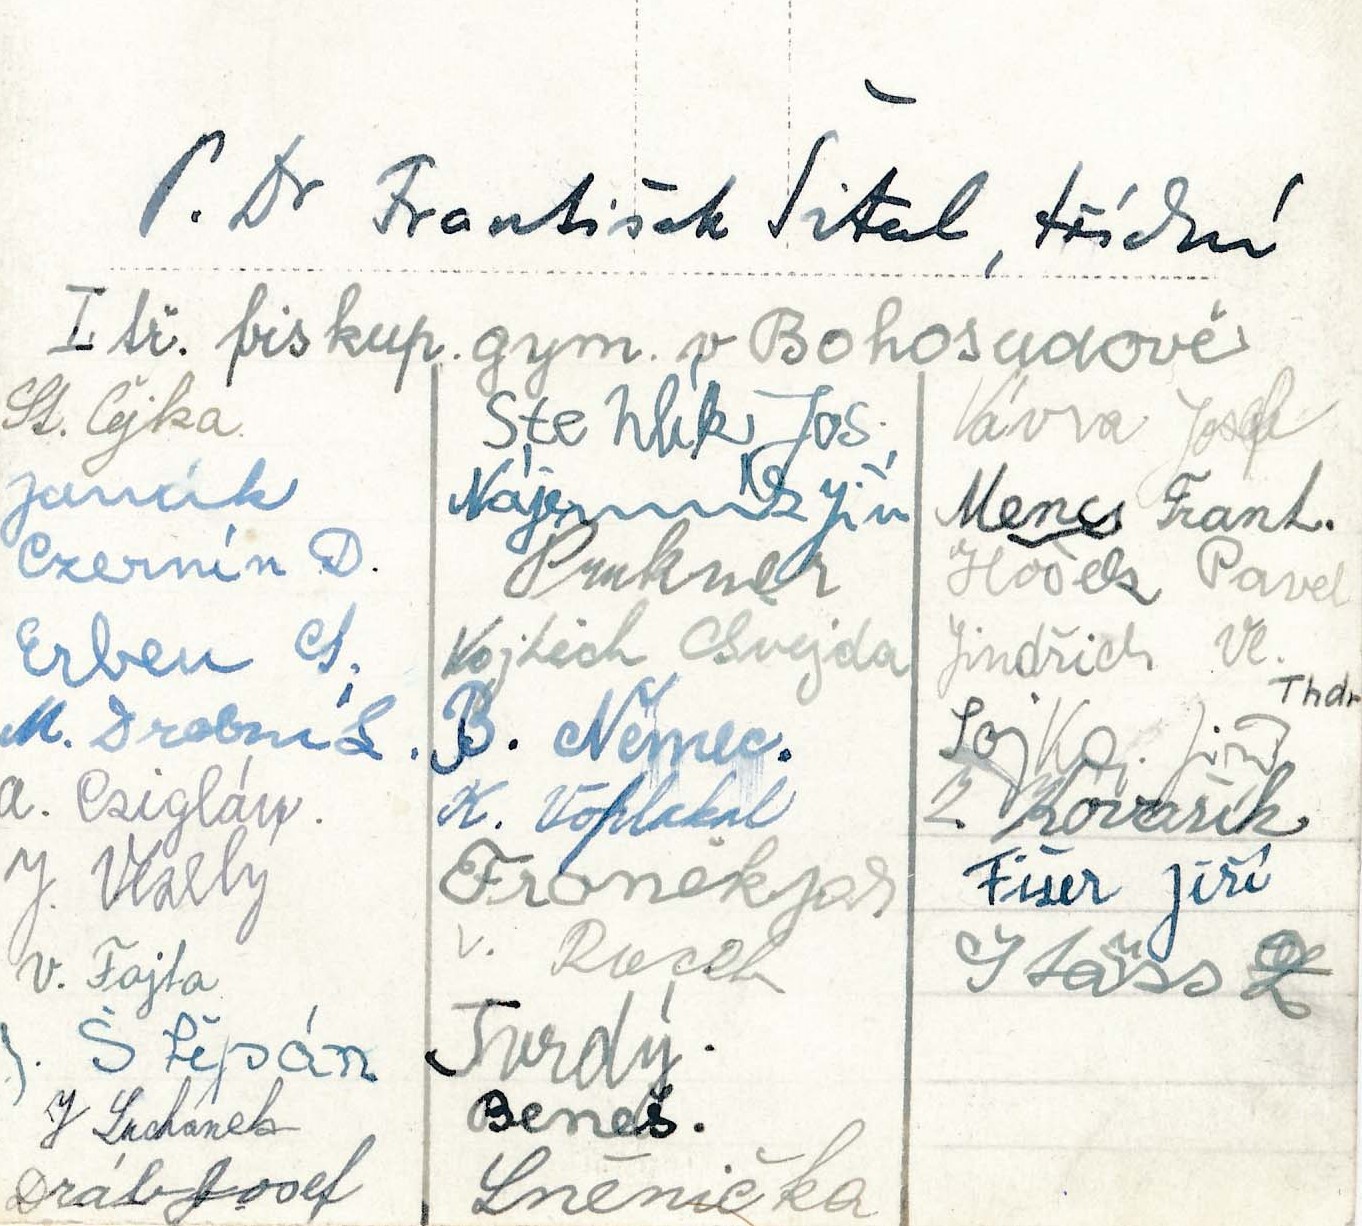 P. Dr František Šital, třídní
I tř. biskup. gym. v Bohosudově
St. Čejka
Janák
Czernín D.
Erben
M. Drobný L.
a. Cziglán.
J. Veselý
V. Fajta
J. Štěpán
J Suchánek
Dráb Josef
Stehlík Jos.
Nájemník Jiří
Prukner
Vojtěch Švejda
B. Němec.
K. Voplakal
Froněk Jar
V. Rucek
Tvrdý.
Beneš.
Lněnička
Vávra Josef
Mencs Frant.
Hošek Pavel
Jindřich Vl.
Thdr
Lojka Jiří
Z. Kovařík
Fišer Jiří